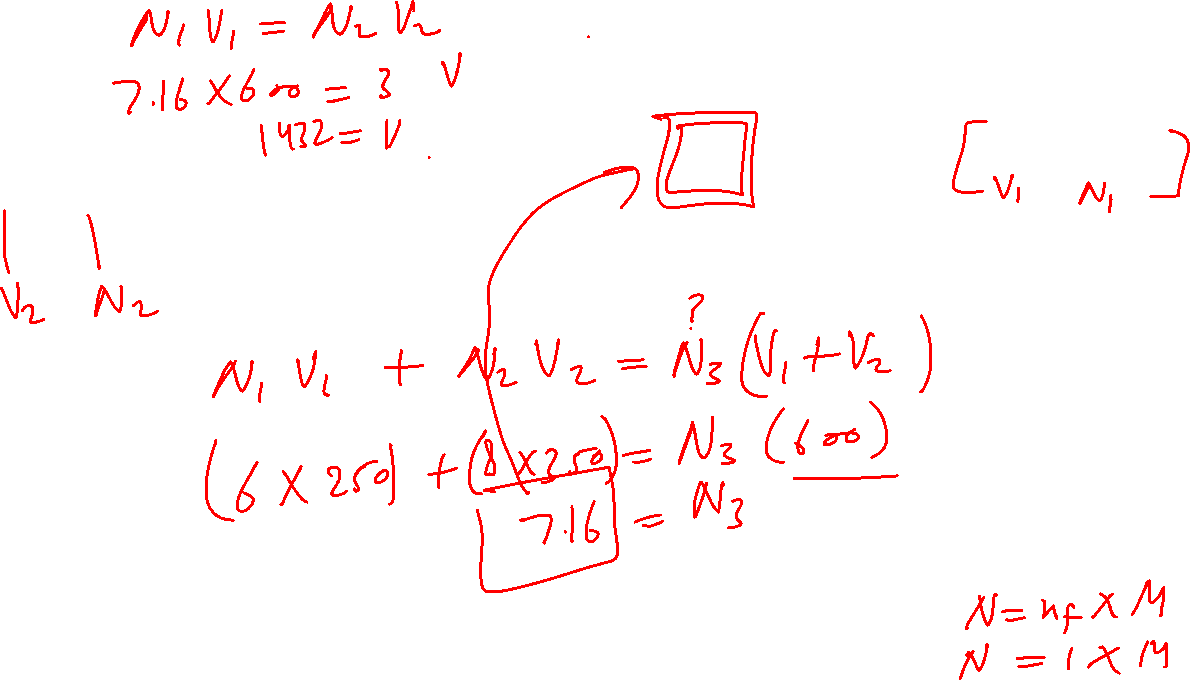 N₁ V₁ = N₂ V₂
7.16 × 600 = 3 V
1432 = V
[ V₁ N₁ ]
V₂ N₂
?
N₁ V₁ + N₂ V₂ = N₃ (V₁ + V₂)
(6 × 250) + (8 × 350) = N₃ (600)
7.16 = N₃
N = nf × M
N = 1 × M